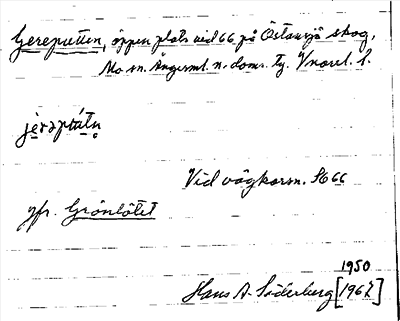 Gereputten, öppen plats vid 66 på Östansjö skog,
Mo sn. Ångerml. n. doms. tg. V norrl. l.
jèrəpùtn̥
Vid vägkorsn. SO 66
jfr. Grönlötet
1950
Hans A. Söderberg [1967]